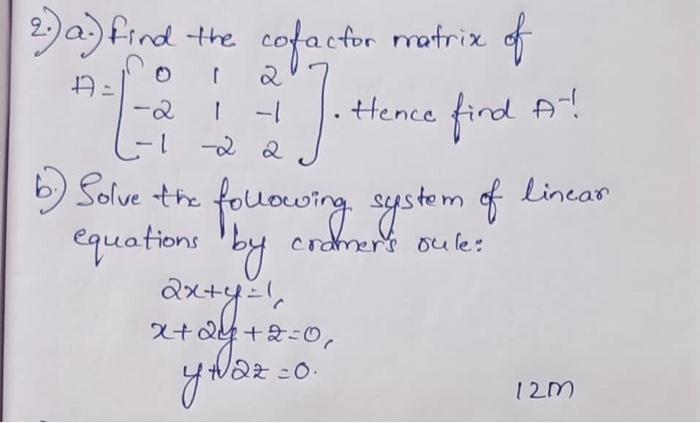 2.) a.) Find the cofactor matrix of
A = [ 0 1 2
-2 1 -1
-1 -2 2 ] . Hence find A⁻¹.
b.) Solve the following system of linear
equations by cramer's rule:
2x+y=1,
x+2y+z=0,
y+2z=0.
12m